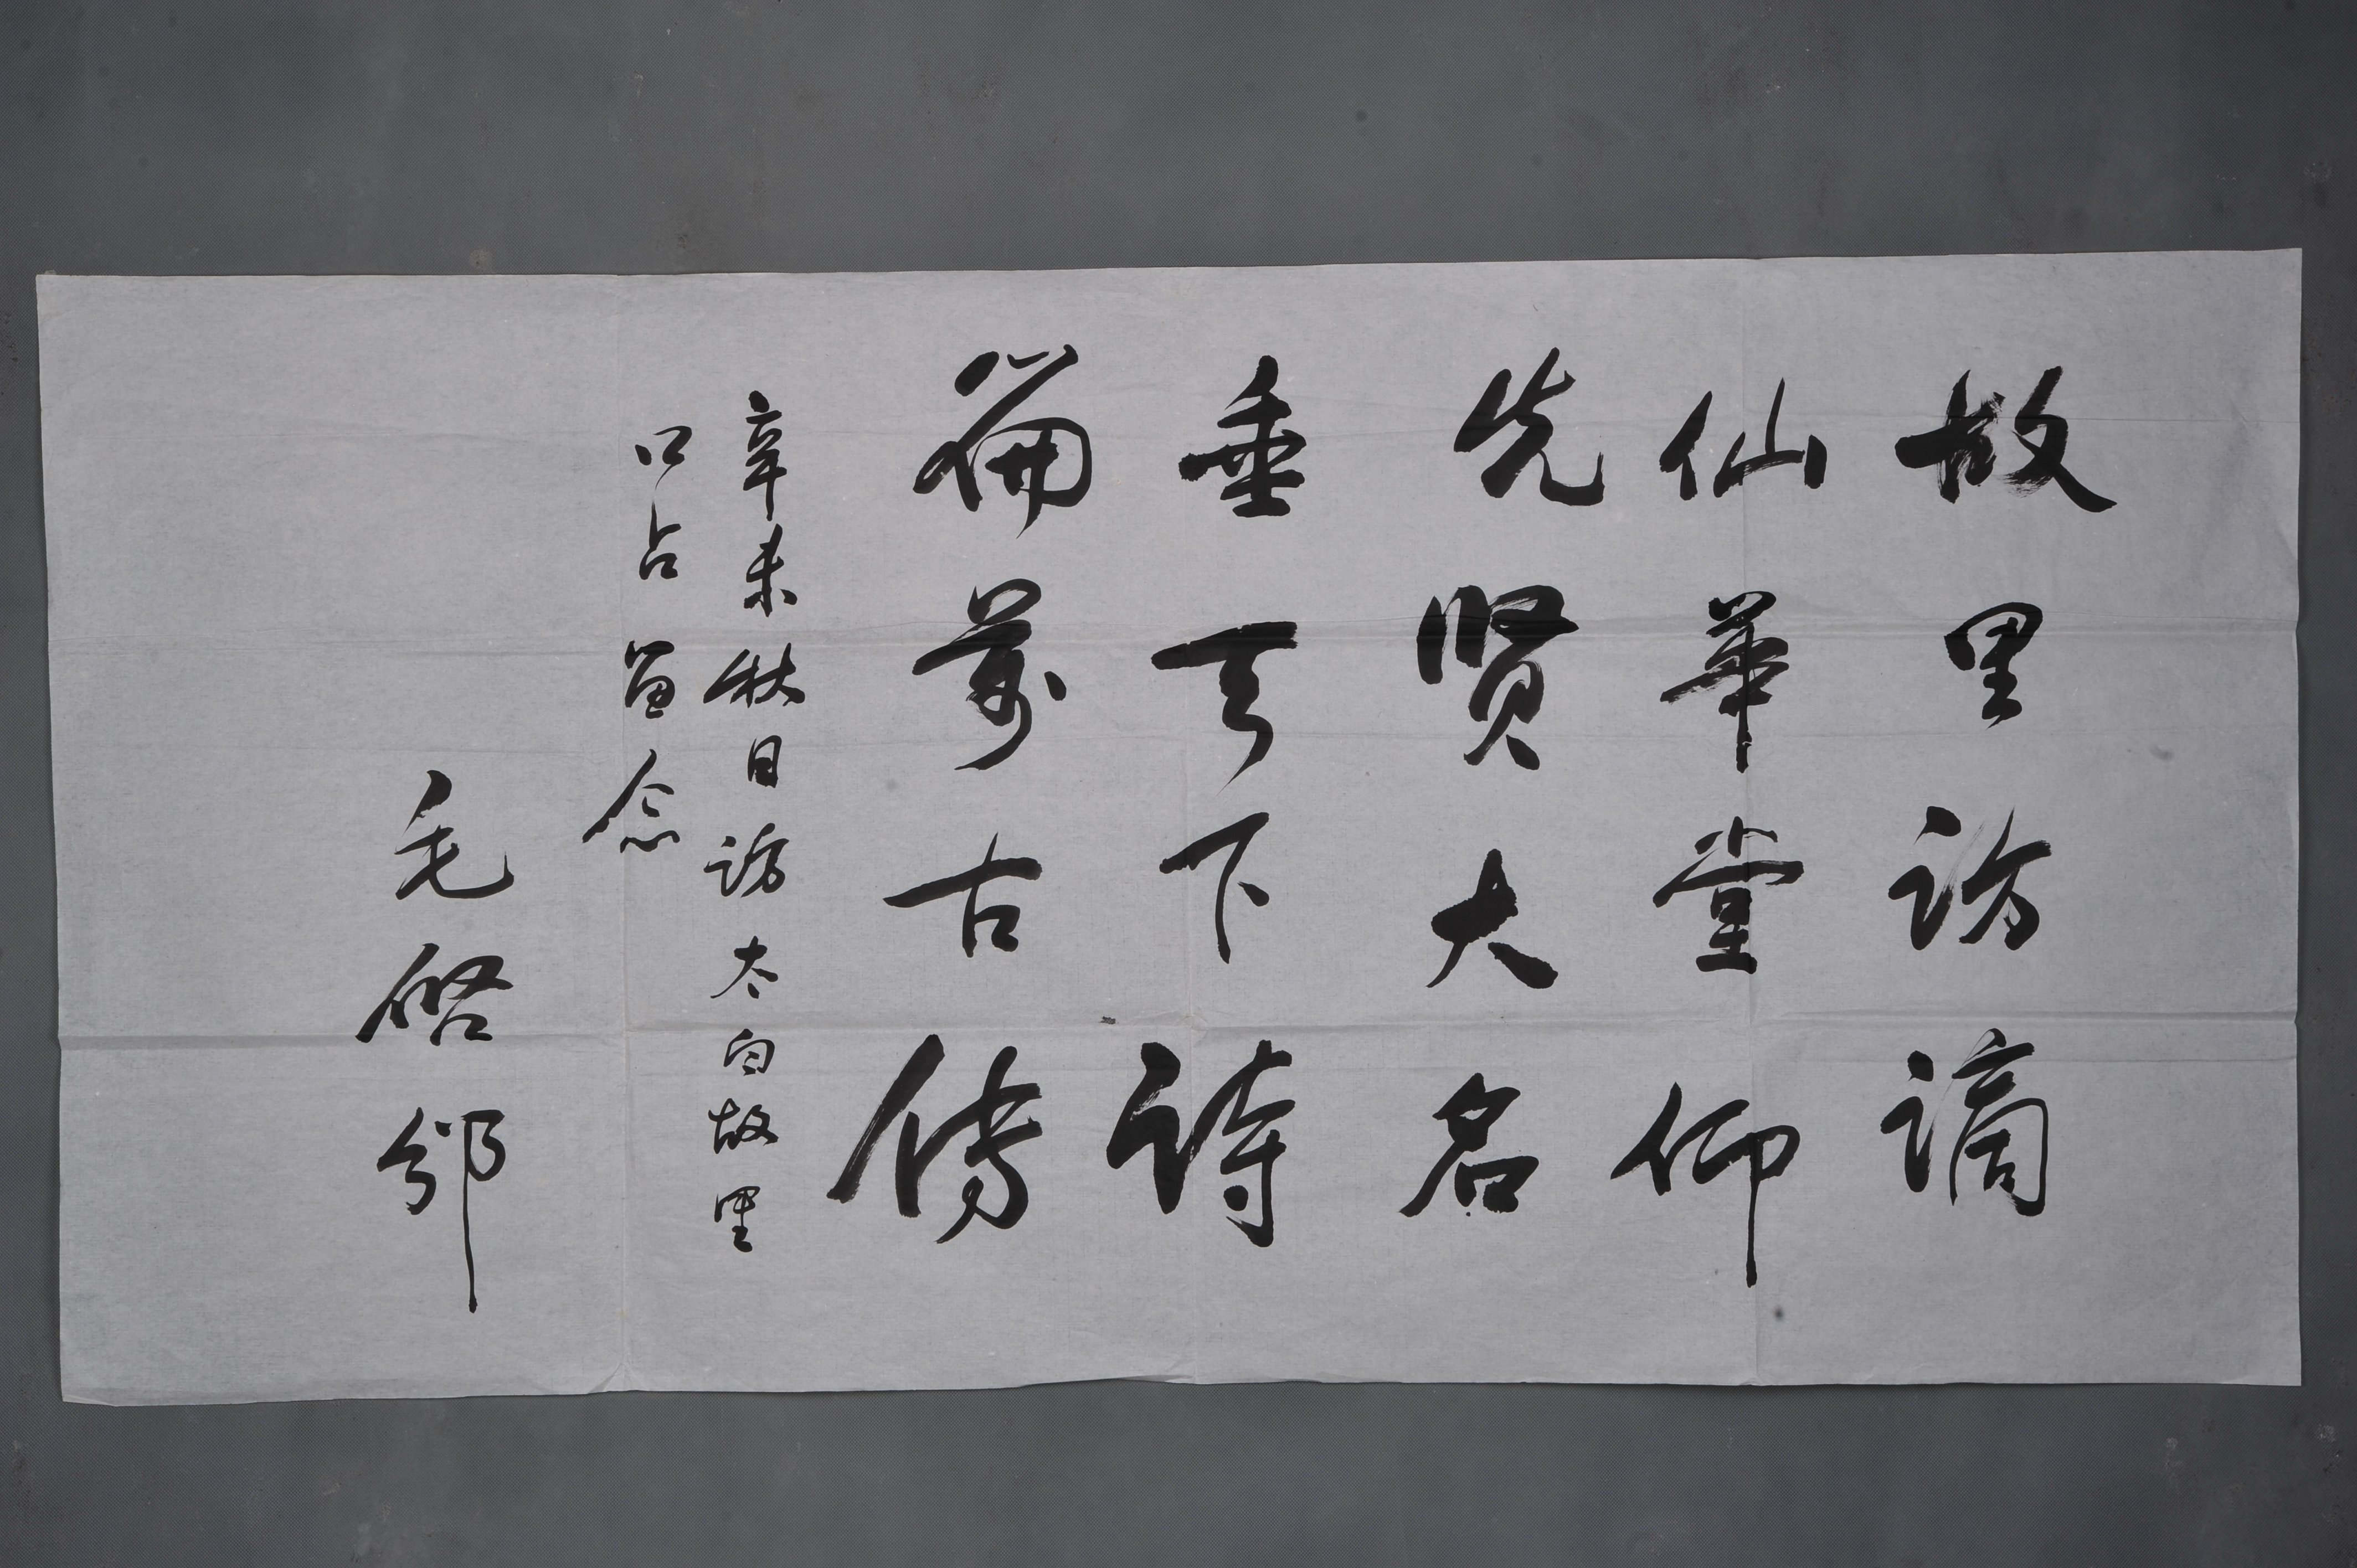 故里访谪
仙華堂仰
先贤大名
垂天下诗
篇萬古傳
辛未秋日访太白故里
口占留念
毛啓邠